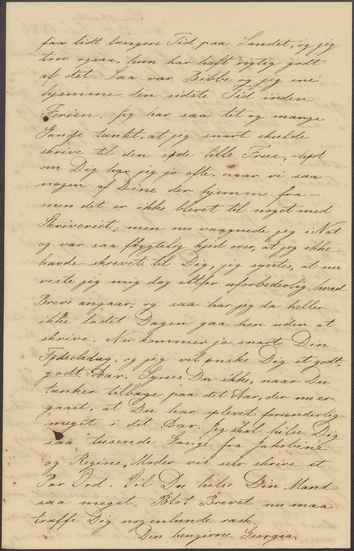 faa lidt længere Tid paa Landet, og jeg
tror ogsaa, hun har haft rigtig godt
af det. Saa var Bebbe og jeg ene
hjemme den sidste Tid inden
Ferien. Jeg har saa tit og mange
Gange tænkt, at jeg snart skulde
skrive til den søde lille Frue, spst
om Dig har jeg jo ofte, naar vi saa
nogen af Dine der hjemme fra —
men det er ikke blevet til noget med
Skriveriet, men nu vaagnede jeg i Nat
og var saa frygtelig kjed over, at jeg ikke
havde skrevet til Dig, jeg syntes, at nu
viste jeg mig dog altfor uforbederlig, hvad
Breve angaar, og saa har jeg da heller
ikke ladet Dagen gaa hen uden at
skrive. Nu kommer jo snart Din
Fødselsdag, og jeg vil ønske Dig et godt,
godt Aar. Synes Du ikke, naar Du
tænker tilbage paa det Aar, der nu er
gaaet, at Du har oplevet forunderlig
meget i det Aar. Jeg skal hilse Dig
saa tusende Gange fra Jakobine
og Regine, Moder vil nok skrive et
Par Ord. Vil Du hilse Din Mand
saa meget. Blot Brevet nu maa
træffe Dig nogenlunde rask.
Din hengivne Georgia.